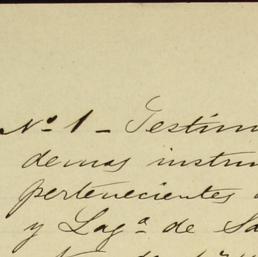 Nº 1 - Testim
demas instru
pertenecientes
y Lagª de Sa